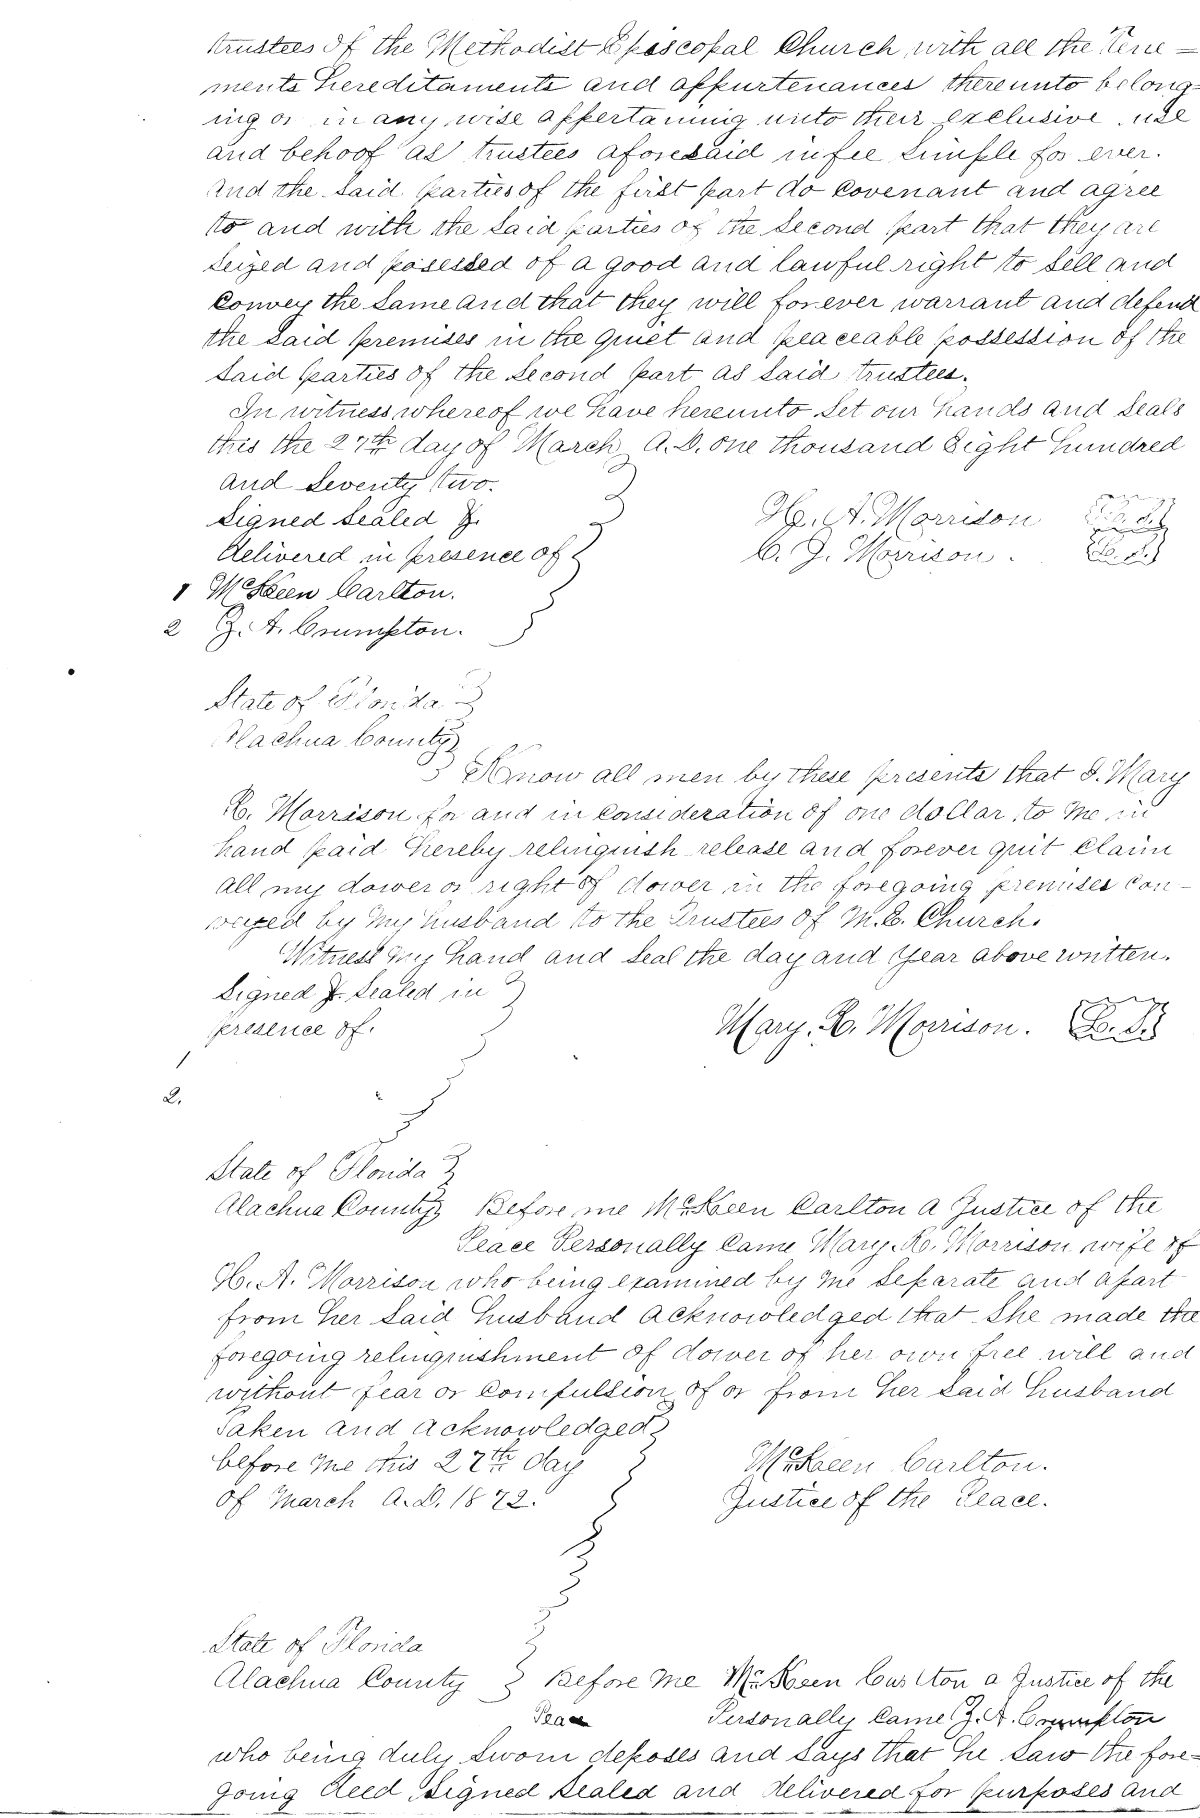 trustees of the Methodist Episcopal Church with all the Tene=
ments hereditaments and appurtenances thereunto belong=
ing or in any wise appertaining unto their exclusive use
and behoof as trustees aforesaid in fee simple for ever.
And the said parties of the first part do covenant and agree
to and with the said parties of the second part that they are
seized and posessed of a good and lawful right to sell and
Convey the same and that they will forever warrant and defend
the said premises in the quiet and peaceable possession of the
said parties of the second part as said trustees.
In witness whereof we have hereunto set our hands and seals
this the 27th day of March A.D. one thousand Eight hundred
and seventy two.
Signed Sealed &
delivered in presence of
H. A. Morrison L.S.
C. J. Morrison. L.S.
1 McKeen Carlton.
2 Z. A. Crumpton.
State of Florida
Alachua County
Know all men by these presents that I. Mary
R. Morrison for and in consideration of one dollar to me in
hand paid hereby relinquish release and forever quit claim
all my dower or right of dower in the foregoing premises con-
veyed by my husband to the Trustees of M.E. Church.
Witness my hand and seal the day and year above written.
Signed & Sealed in
presence of.
Mary. R. Morrison. L.S.
1
2.
State of Florida
Alachua County Before me McKeen Carlton a Justice of the
Peace Personally Came Mary. R. Morrison wife of
H. A. Morrison who being examined by me separate and apart
from her said husband acknowledged that she made the
foregoing relinquishment of dower of her own free will and
without fear or compulsion of or from her said husband
Taken and acknowledged
before me this 27th day
of March A.D. 1872.
McKeen Carlton.
Justice of the Peace.
State of Florida
Alachua County Before me McKeen Carlton a Justice of the
Peace Personally Came Z. A. Crumpton
who being duly sworn deposes and says that he saw the fore=
going deed signed sealed and delivered for purposes and